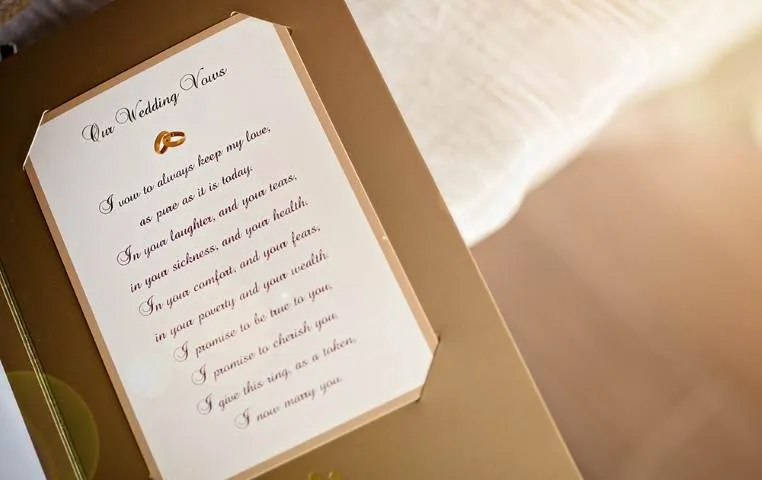 Our Wedding Vows
I vow to always keep my love,
as pure as it is today.
In your laughter, and your tears,
in your sickness, and your health.
In your comfort, and your fears,
in your poverty and your wealth.
I promise to be true to you,
I promise to cherish you,
I give this ring, as a token,
I now marry you.